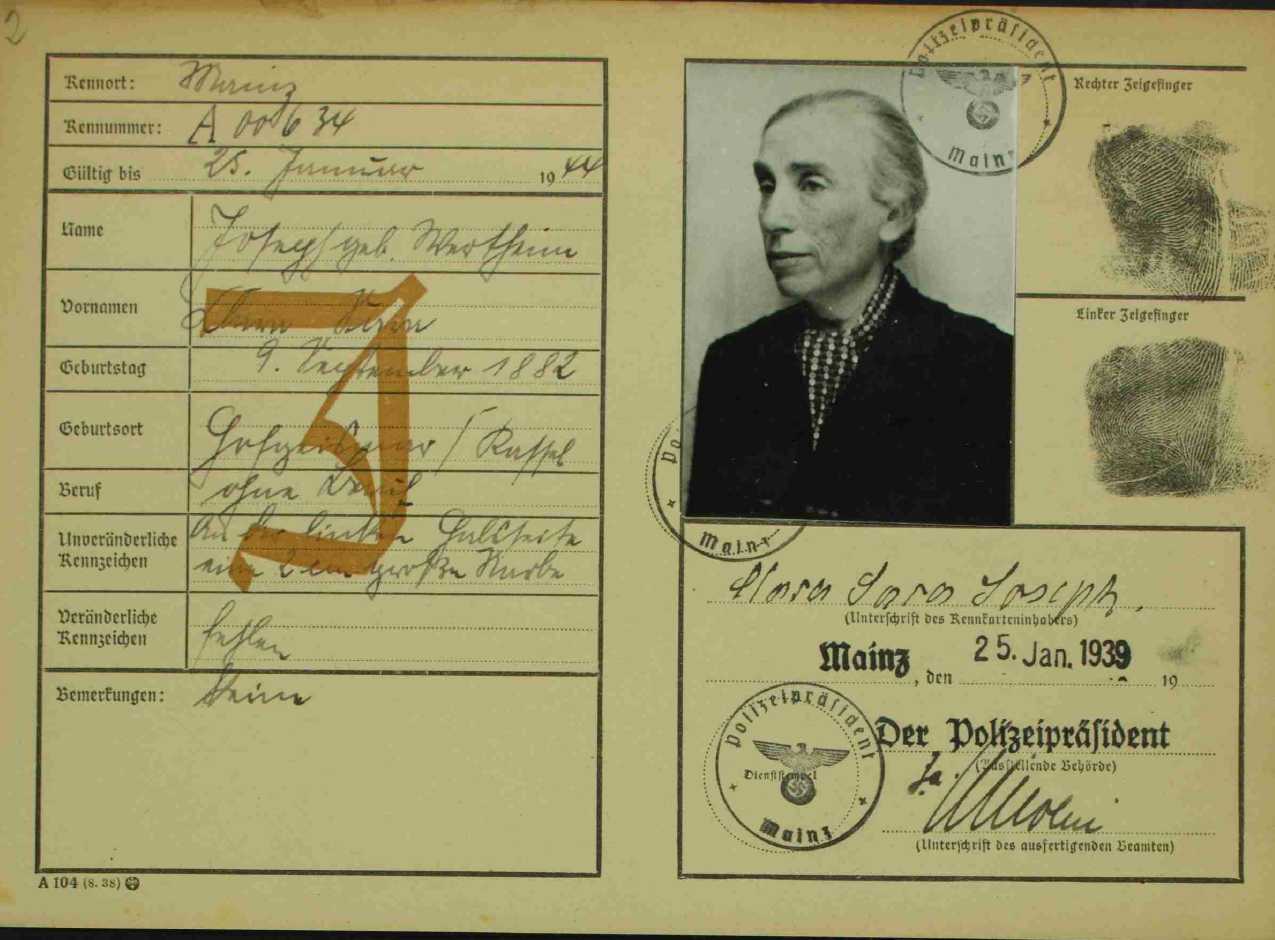 2
Kennort: Mainz
Kennummer: A 00634
Gültig bis 25. Januar 1944
Name Joseph geb. Wertheim
Vornamen Klara Sara
Geburtstag 9. September 1882
Geburtsort Hofgeismar / Kassel
Beruf ohne Beruf
Unveränderliche Kennzeichen An der linken Halsseite
eine 2 cm große Narbe
Veränderliche Kennzeichen fehlen
Bemerkungen: Keine
J
A 104 (8. 38)
Polizeipräsident
Mainz
Rechter Zeigefinger
Linker Zeigefinger
Mainz
Clara Sara Joseph.
(Unterschrift des Kennkarteninhabers)
Mainz, den 25. Jan. 1939 19
Polizeipräsident
Dienststempel
Mainz
Der Polizeipräsident
(Ausstellende Behörde)
(Unterschrift des ausfertigenden Beamten)